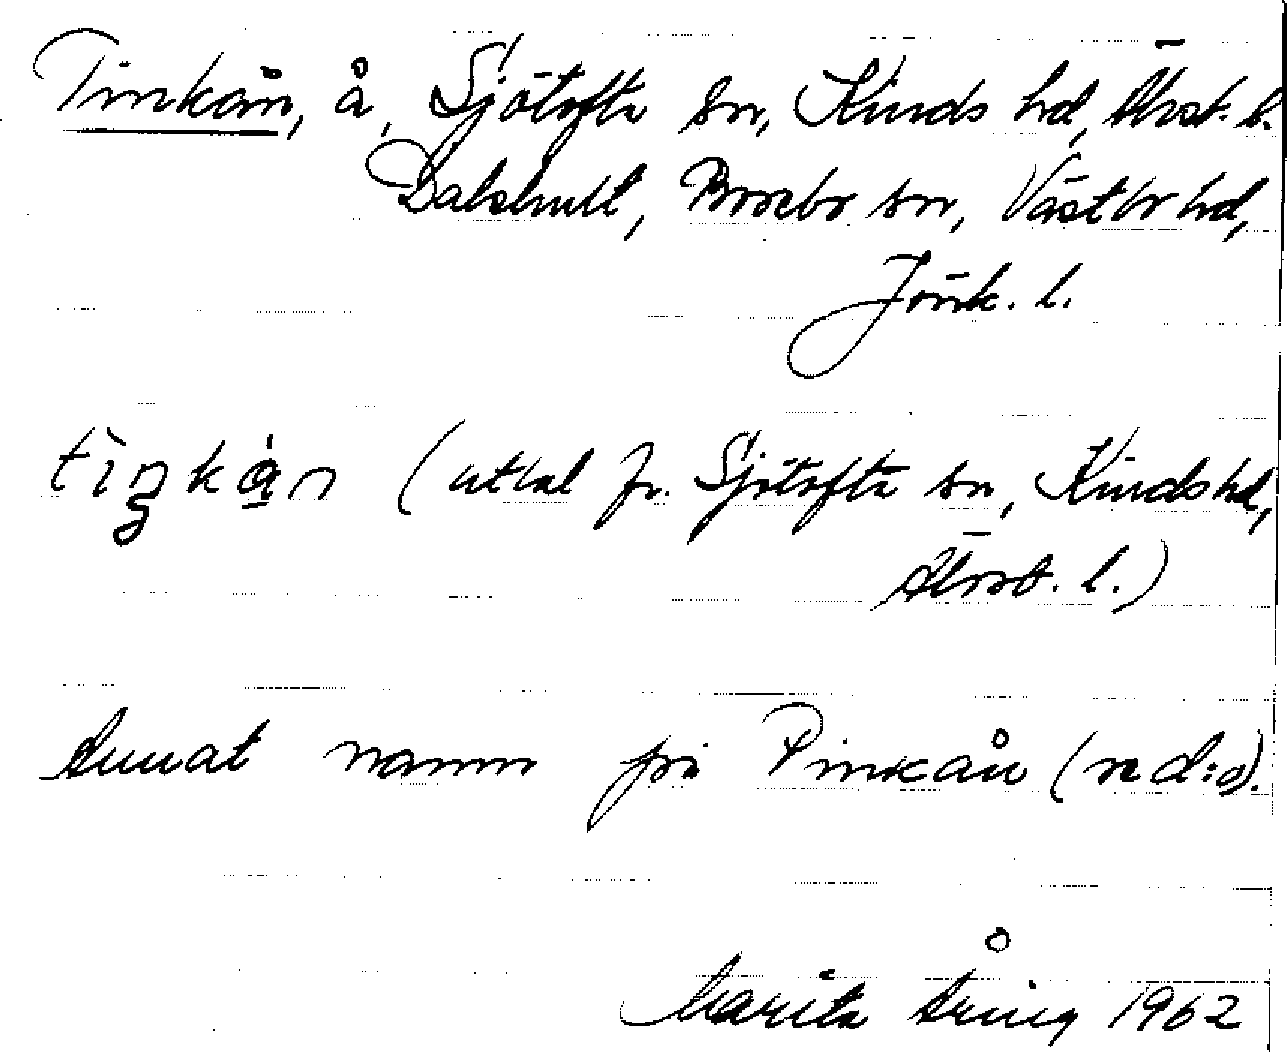 Tinkån, å, Sjötofta sn, Kinds hd, Älvsb. l.
Dalshult, Bosebo sn, Västbo hd,
Jönk. l.
(uttal fr. Sjötofta sn, Kinds hd,
Älvsb. l.)
Annat namn på Pinkån (se d:o).
Marita Åring 1962